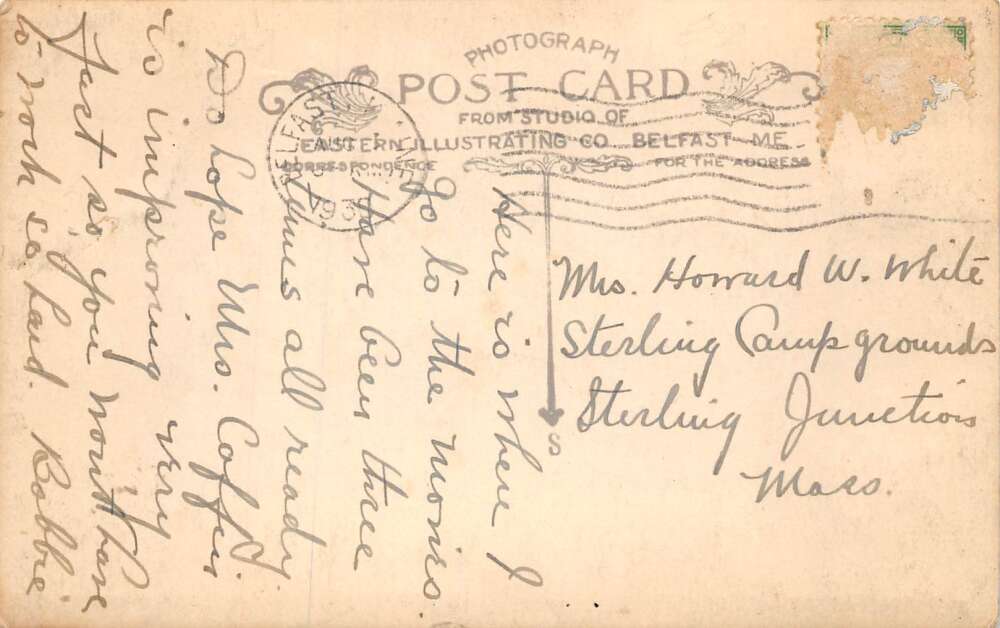 PHOTOGRAPH
POST CARD
FROM STUDIO OF
EASTERN ILLUSTRATING CO. BELFAST, ME.
CORRESPONDENCE
FOR THE ADDRESS
BELFAST
193
S
Here is where I
go to the movies.
Have been three
times all ready
Do hope Mrs. Coffin
is improving very
fast so you wont have
to work so hard. Robbie
Mrs. Howard W. White
Sterling Camp grounds
Sterling Junction
Mass.